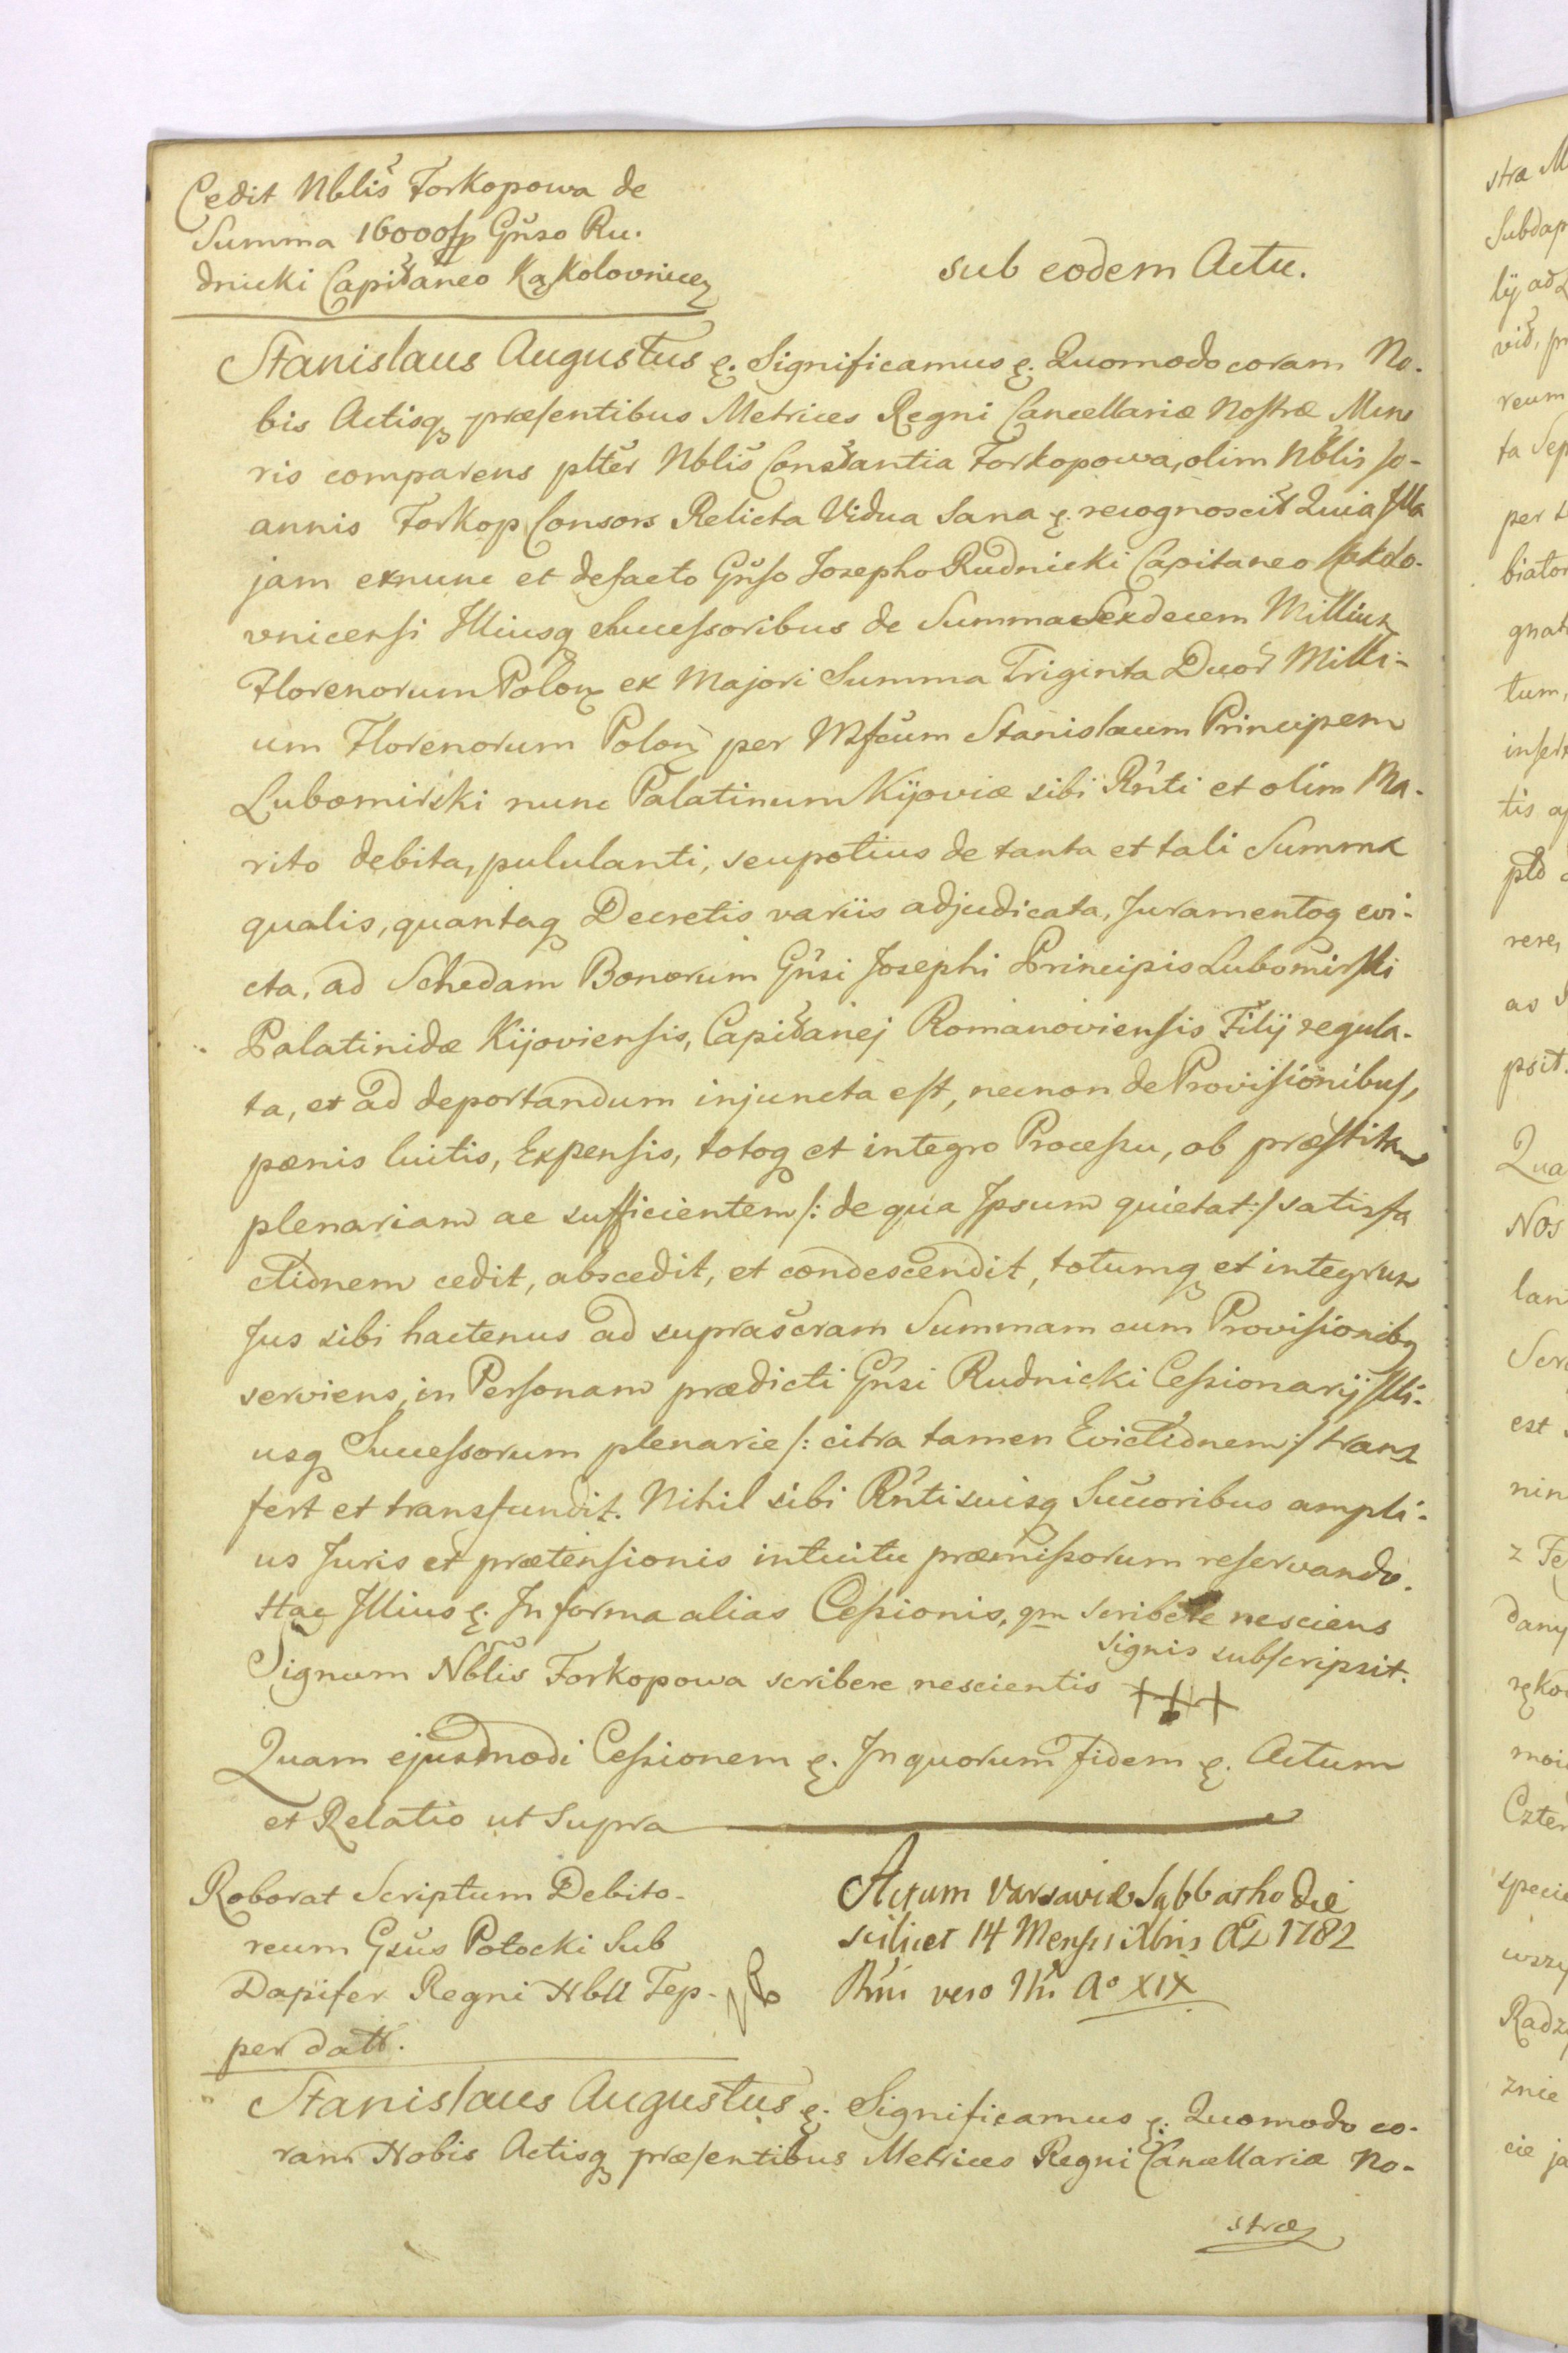 Cedit Nblis Torkopowa de
Summa 16000 fp Gnso Ru.
dnicki Capitaneo Kąkolovnicen
sub eodem Actu.
Stanislaus Augustus &. Significamus &. Quomodo coram No.
bis Actisq præsentibus Metrices Regni Cancellariæ Nostræ Mino
ris comparens pltěr Nblis Constantia Torkopowa, olim Nblis Jo-
annis Torkop Consors Relicta Vidua Sana &. recognoscit Quia Illa
jam exnunc et defacto Gnso Josepho Rudnicki Capitaneo Kąkolo-
vnicensi Illiusq Successoribus de Summa Sexdecem Millium
Florenorum Polon ex Majori Summa Triginta Duor Milli-
um Florenorum Polon per Mfcum Stanislaum Principem
Lubomirski nunc Palatinum Kijoviæ sibi Rnti et olim Ma-
rito debita, pululanti, seu potius de tanta et tali Summa
qualis, quantaq Decretis variis adjudicata, Juramentoq evi-
cta, ad Schedam Bonorum Gnsi Josephi Principis Lubomirski
Palatinidæ Kijoviensis, Capitanej Romanoviensis Filij regula-
ta, et ad deportandum injuncta est, necnon de Provisionibus,
pœnis luitis, Expensis, totoq et integro Processu, ob præstitam
plenariam ac sufficientem /: de qua Ipsum quietat :/ satisfa
ctionem cedit, abscedit, et condescendit, totumq et integrum
Jus sibi hactenus ad suprascram Summam cum Provisionibq
serviens, in Personam prædicti Gnsi Rudnicki Cessionarij Illi-
usq Successorum plenarie /: citra tamen Evictionem :/ trans
fert et transfundit. Nihil sibi Rnti suisq Succoribus ampli-
us Juris et prætensionis intuitu præmissorum reservando.
Hac Illius &. In forma alias Cessionis, qm scribere nesciens
signis subscripsit.
Signum Nblis Torkopowa scribere nescientis +++
Quam ejusmodi Cessionem &. In quorum fidem &. Actum
et Relatio ut Supra
Roborat Scriptum Debito-
reum Gsus Potocki Sub
Dapifer Regni Nbli Tep-
per datt.
Actum Varsaviæ Sabbatho die
scilicet 14 Mensis Xbris A 1782
Rni vero Nri Aº XIX
Stanislaus Augustus &. Significamus &. Quomodo co-
ram Nobis Actisq præsentibus Metrices Regni Cancellariæ No-
stræ
stra M
Subdap
lij ad
vid, pr
reum
ta Sep
per
biator
gnat
tum,
insert
tis
ptd
rere,
as
psit.
Qua
Nos
lan
Scr
est
nin
z Te
dany
ręko
moi
Czter
specie
wszy
Radz
znie
cie ja